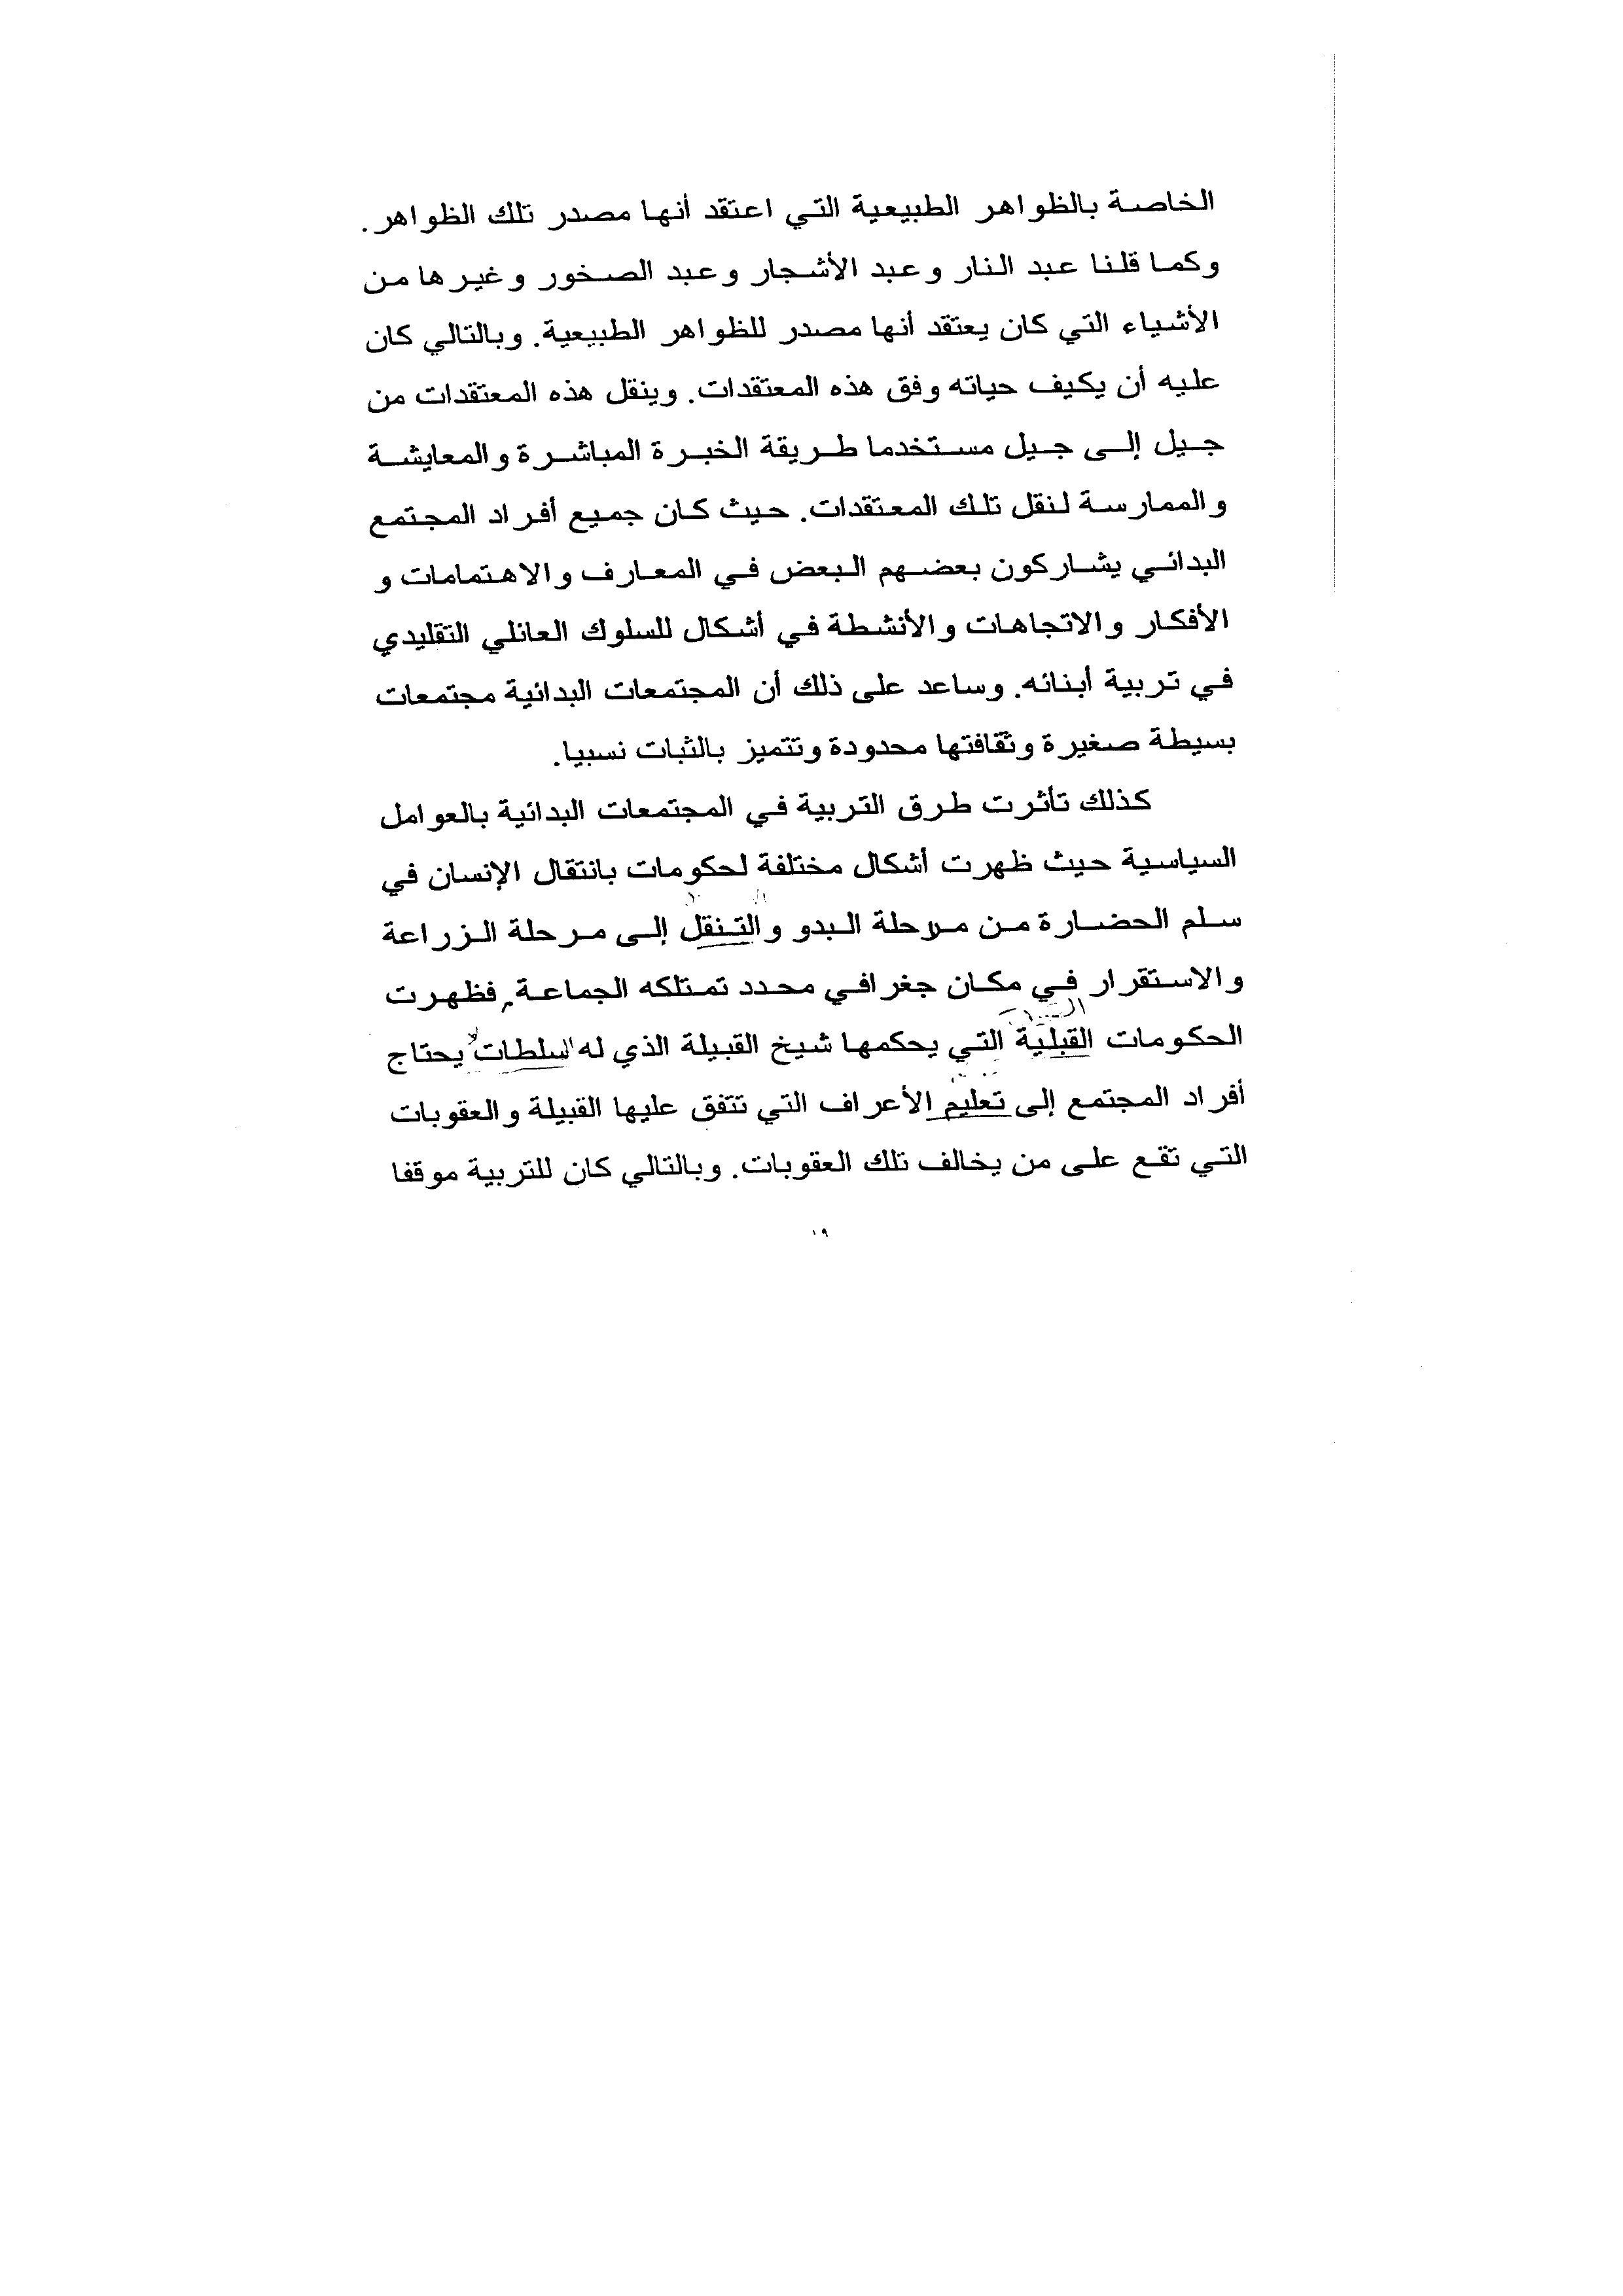 الخاصة بالظواهر الطبيعية التي اعتقد أنها مصدر تلك الظواهر.
وكما قلنا عبد النار وعبد الأشجار وعبد الصخور وغيرها من
الأشياء التي كان يعتقد أنها مصدر للظواهر الطبيعية. وبالتالي كان
عليه أن يكيف حياته وفق هذه المعتقدات. وينقل هذه المعتقدات من
جيل إلى جيل مستخدما طريقة الخبرة المباشرة والمعايشة
والممارسة لنقل تلك المعتقدات. حيث كان جميع أفراد المجتمع
البدائي يشاركون بعضهم البعض في المعارف والاهتمامات و
الأفكار والاتجاهات والأنشطة في أشكال للسلوك العائلي التقليدي
في تربية أبنائه. وساعد على ذلك أن المجتمعات البدائية مجتمعات
بسيطة صغيرة وثقافتها محدودة وتتميز بالثبات نسبيا.
كذلك تأثرت طرق التربية في المجتمعات البدائية بالعوامل
السياسية حيث ظهرت أشكال مختلفة لحكومات بانتقال الإنسان في
سلم الحضارة من مرحلة البدو والتنقل إلى مرحلة الزراعة
والاستقرار في مكان جغرافي محدد تمتلكه الجماعة، فظهرت
الحكومات القبلية التي يحكمها شيخ القبيلة الذي له سلطات يحتاج
أفراد المجتمع إلى تعليم الأعراف التي تتفق عليها القبيلة والعقوبات
التي تقع على من يخالف تلك العقوبات. وبالتالي كان للتربية موقفا
١٩